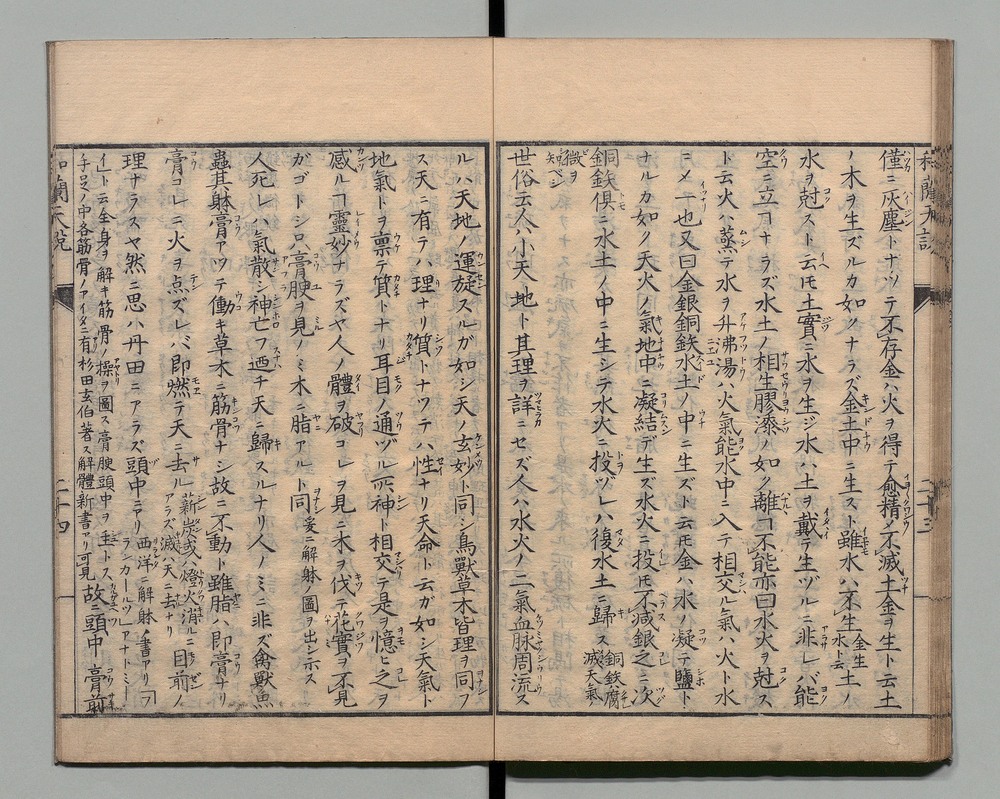 僅ニ灰塵トナツテ不存金ハ火ヲ得テ愈精ノ不滅土金ヲ生ト云土
ノ木ヲ生ズルカ如クナラズ金土中ニ生スト雖水ハ不生金生水ト云土ノ
水ヲ尅スト云モ土實ニ水ヲ生ジ水ハ土ヲ戴テ生ヅルニ非レバ能
空ニ立コナラズ水土ノ相生膠漆ノ如ク離コ不能亦曰水火ヲ尅ス
ト云火ハ蒸テ水ヲ升沸湯ハ火氣能水中ニ入テ相交ル氣ハ火ト水
ニメ一也又曰金銀銅鉄水土ノ中ニ生ズト云モ金ハ水ノ凝テ鹽ト
ナルカ如ク天火ノ氣地中ニ凝結デ生ズ水火ニ投モ不減銀之ニ次
銅鉄俱ニ水土ノ中ニ生シテ水火ニ投ツレハ後水土ニ歸ス銅鉄腐滅天氣
微ヲ知ベシ
世俗云人ハ小天地ト其理ヲ詳ニセズ人ハ水火ノ二氣血脉周流ス
ルハ天地ノ運旋スルガ如シ天ノ玄妙ト同シ鳥獸草木皆理ヲ同フ
ス天ニ有テハ理ナリ質トナツテハ性ナリ天命ト云ガ如シ天氣ト
地氣トヲ禀テ質トナリ耳目ノ通ヅル所神ト相交テ是ヲ憶ヒ之ヲ
感ルコ靈妙ナラズヤ人ノ體ヲ破コレヲ見ニ木ヲ伐テ花實ヲ不見
ガゴトシ只膏腴ヲ見ノミ木ニ脂アルト同シ爰ニ解躰ノ圖ヲ出シ示ス
人死レハ氣散シ神亡フ迺チ天ニ歸スルナリ人ノミニ非ズ禽獸魚
蟲其躰膏アツテ働キ草木ニ筋骨ナシ故ニ不動ト雖脂ハ即膏ナリ
膏コレニ火ヲ点ズレバ即燃テ天ニ去ル薪炭或ハ燈火消ルニアラズ滅天ニ去ナリ目前ノ
理ナラスヤ然ニ思ハ丹田ニアラズ頭中ニアリ西洋ニ解躰ノ書アリ
イ上ト云全身ヲ解キ筋骨ノ操ヲ圖ス膏腴頭中ヲ主トス
手足ノ中各筋骨ノアイダニ有杉田玄伯著ス解體新書アリ可見故ニ頭中ノ膏前
和蘭天說
二十三
二十四